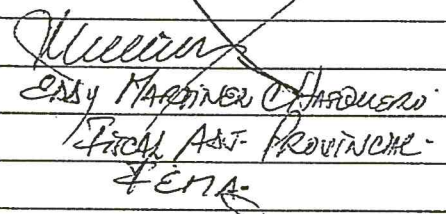 Eddy Martinez Chafquero
Fiscal Adj. Provincial
FEMA